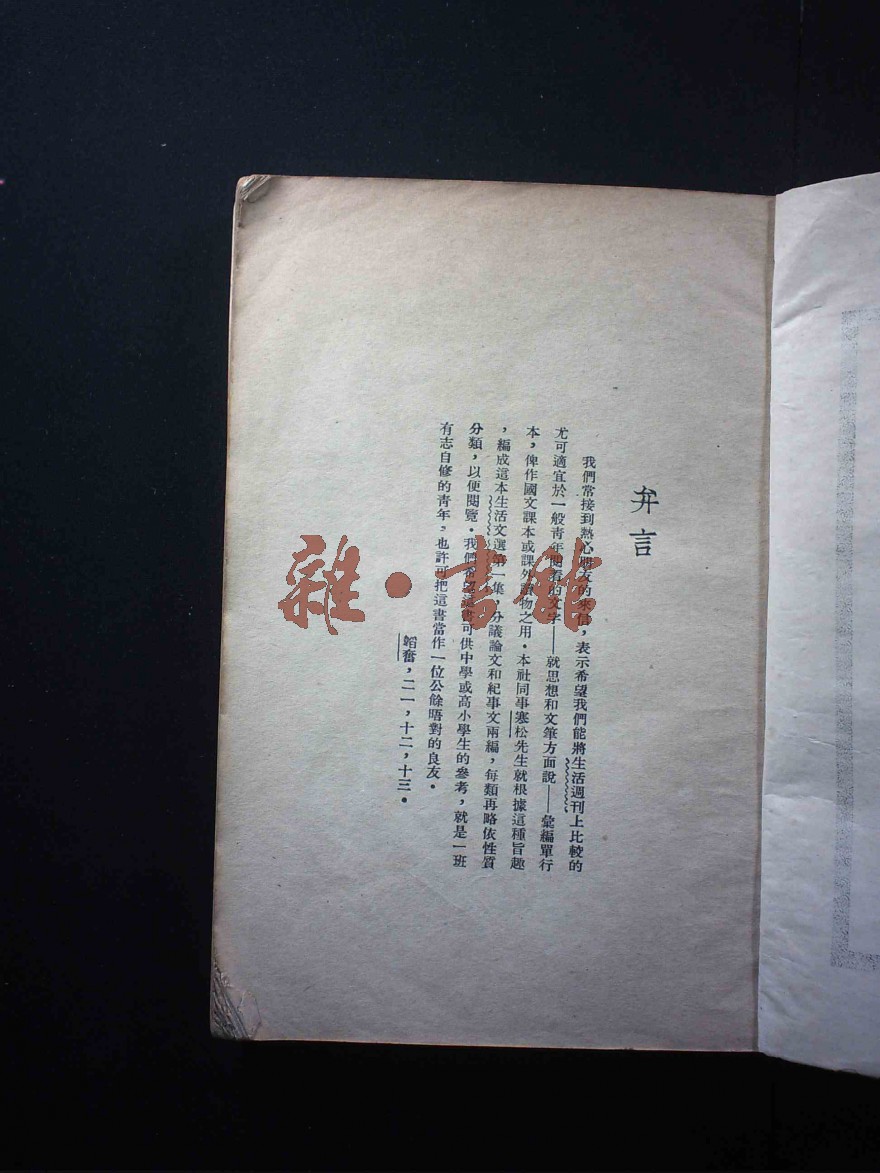 弁言
我們常接到熱心朋友的來信，表示希望我們能將生活週刊上比較的
尤可適宜於一般青年閱看的文字——就思想和文筆方面說——彙編單行
本，俾作國文課本或課外讀物之用。本社同事寒松先生就根據這種旨趣
，編成這本生活文選第一集，分議論文和紀事文兩編，每類再略依性質
分類，以便閱覽。我們希望這書可供中學或高小學生的參考，就是一班
有志自修的青年，也許可把這書當作一位公餘晤對的良友。
韜奮，二一，十二，十三。
雜·書館